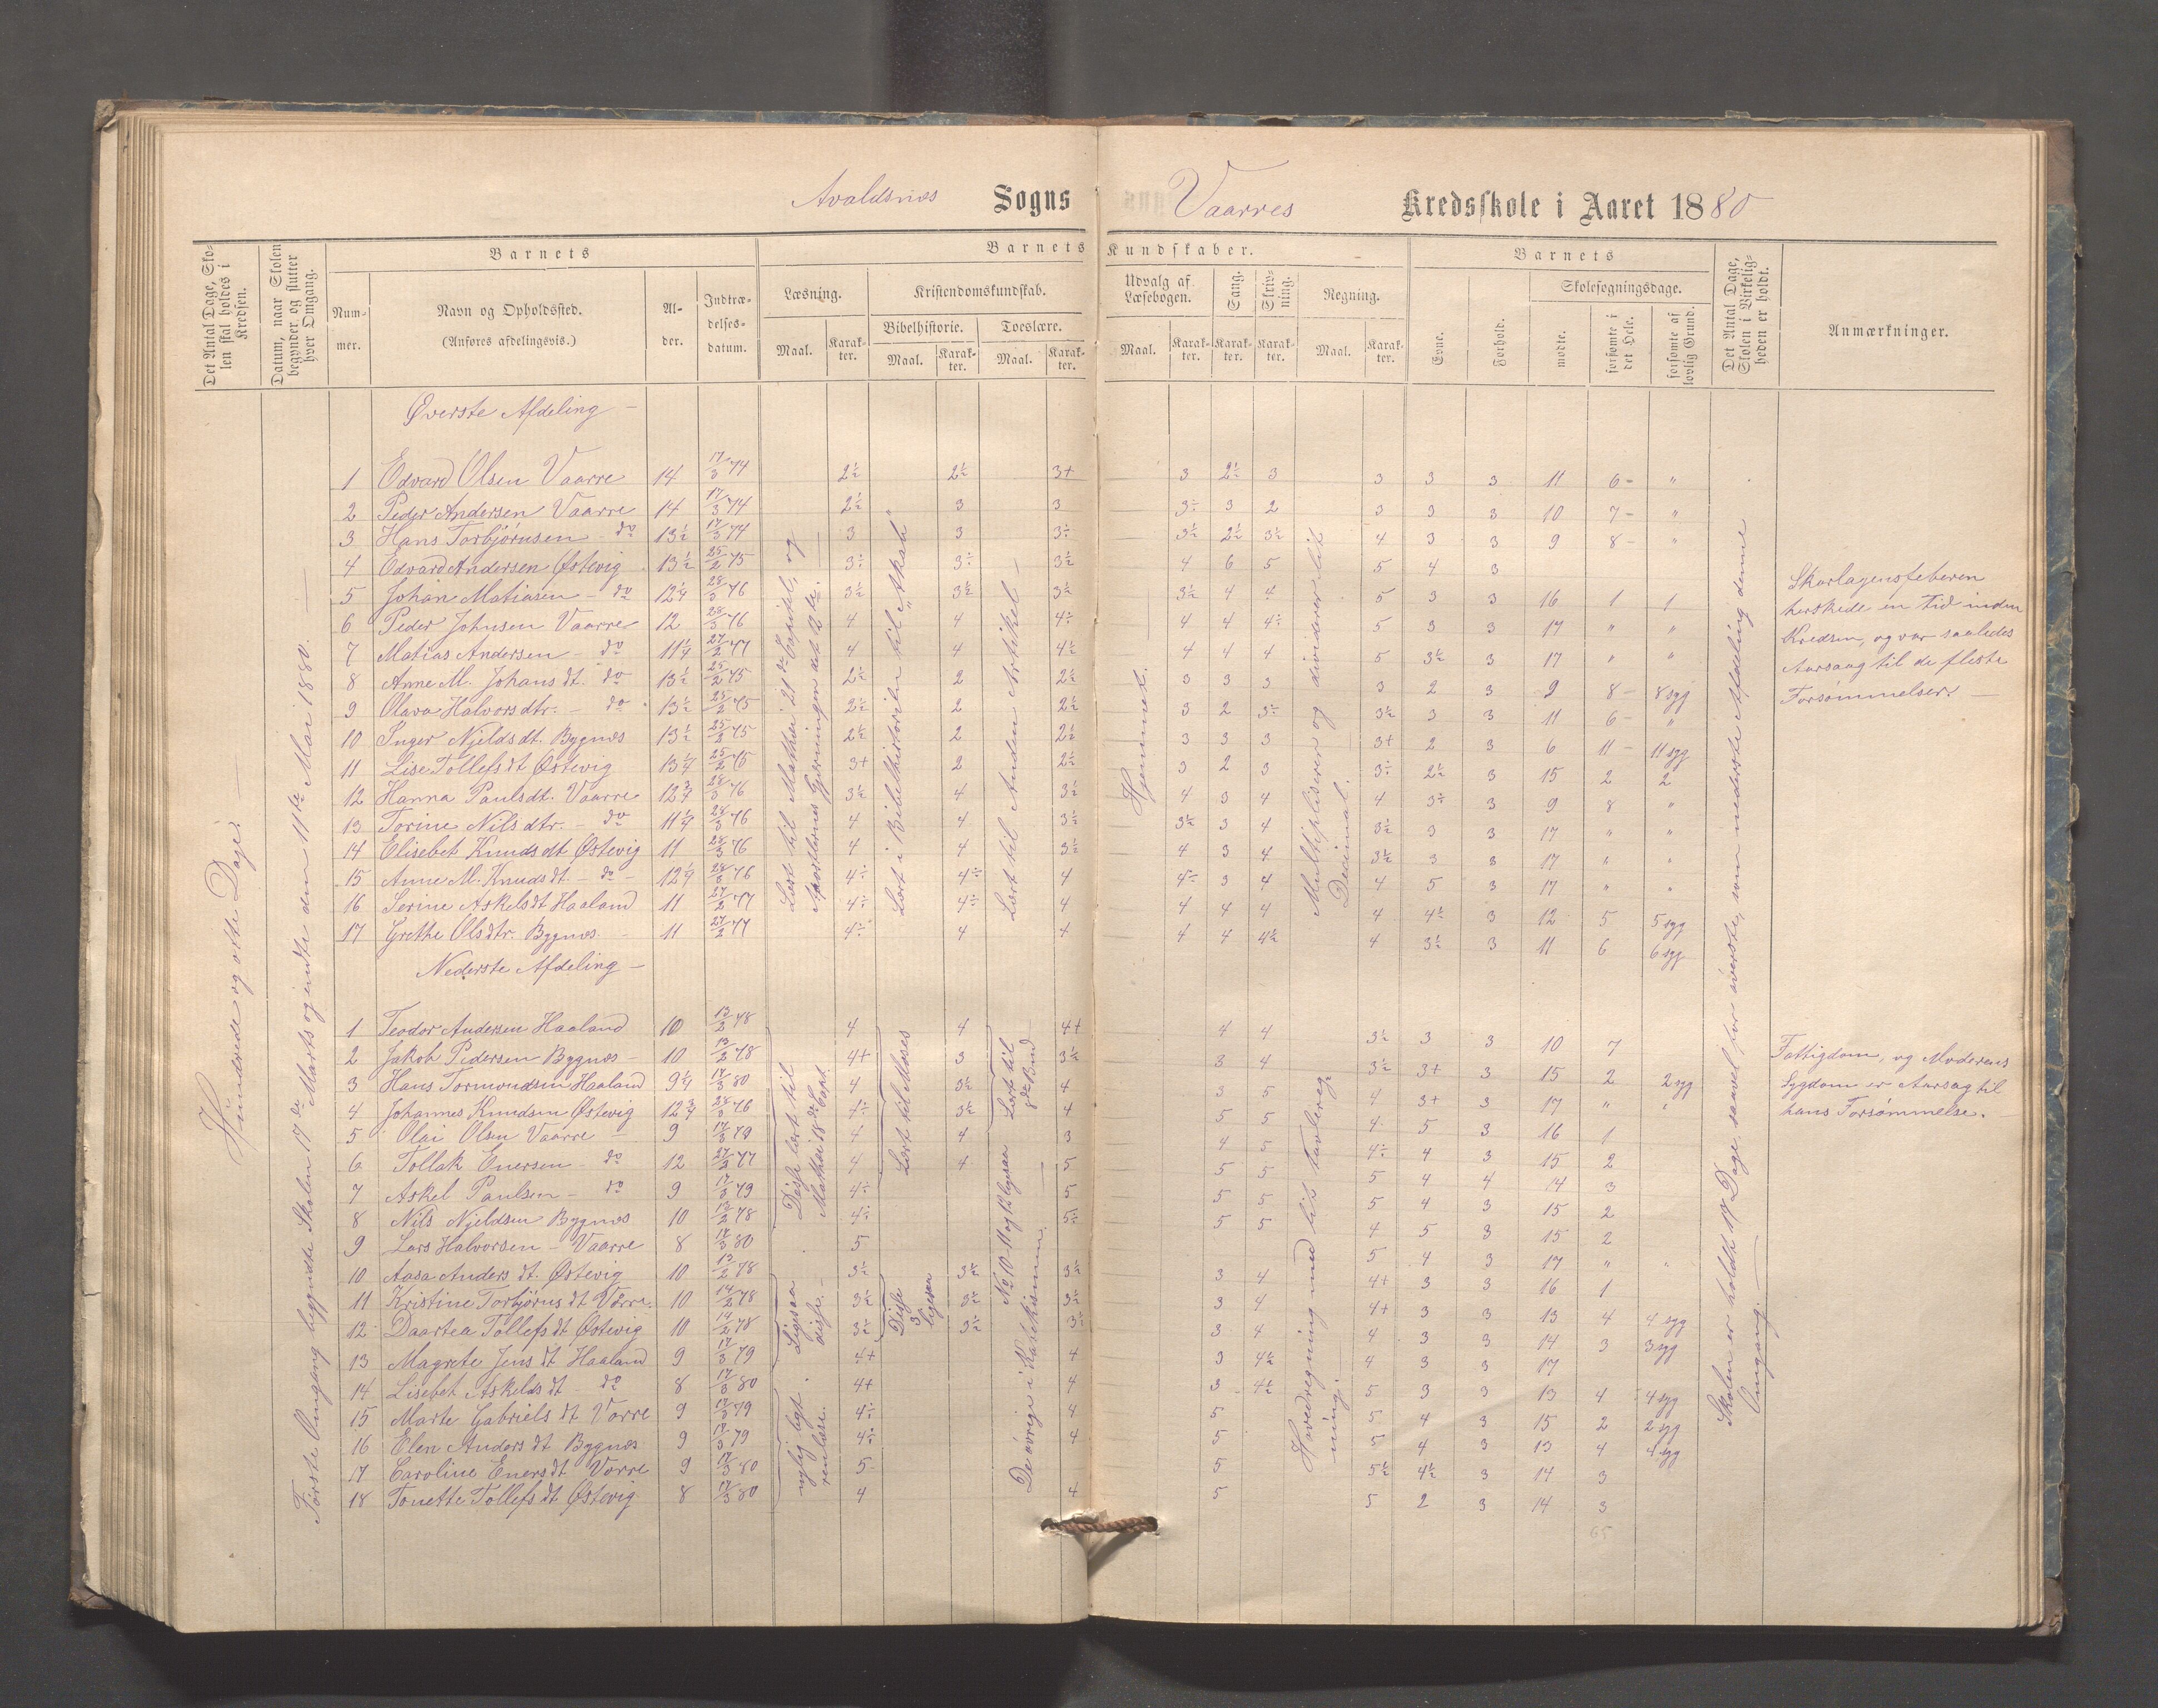 Avaldsnæs Sogns Vaarres Kredsskole i Aaret 1880
Det Antal Dage, Skolen skal holdes i Kredsen.
Datum, naar Skolen begynder og slutter hver Omgang.
Barnets
Nummer.
Navn og Opholdssted.
(Anføres afdelingsvis.)
Alder.
Indtrædelsesdatum.
Barnets Kundskaber.
Læsning.
Maal.
Karakter.
Kristendomskundskab.
Bibelhistorie.
Maal.
Karakter.
Troeslære.
Maal.
Karakter.
Udvalg af Læsebogen.
Maal.
Karakter.
Sang.
Karakter.
Skrivning.
Karakter.
Regning.
Maal.
Karakter.
Barnets
Evne.
Forhold.
Skolesøgningsdage.
mødte.
forsømte i det Hele.
forsømte af lovlig Grund.
Det Antal Dage, Skolen i Virkeligheden er holdt.
Anmærkninger.
Hundrede og otte Dage.
Første Omgang begyndte Skolen 17de Marts og endte den 11te Mai 1880.
Øverste Afdeling
1 Edvard Olsen Vaarre 14 17/3 74 2½ 2½ 3+ 3 2½ 3 3 3 3 11 6 "
2 Peder Andersen Vaarre 14 17/3 74 2½ 3 3 3÷ 3 2 3 3 3 10 7 "
3 Hans Torbjørnsen do 13½ 17/3 74 3 3 3÷ 3½ 2½ 3½ 4 3 3 9 8 "
4 Edvard Andersen Østevig 13½ 25/2 75 3÷ 3÷ 3½ 4 6 5 5 4 3
5 Johan Matiasen do 12¼ 28/3 76 3½ 3½ 3½ 3½ 4 4 5 3 3 16 1 1
6 Peder Johnsen Vaarre 12 28/3 76 4 4 4÷ 4 4 4÷ 5 3 3 17 " "
7 Matias Andersen do 11¼ 27/2 77 4 4 4½ 4 4 4 5 3½ 3 17 " "
8 Anne M. Johansdt. do 13½ 25/2 75 2½ 2 2½ 3 3 3 3 2 3 9 8 8 syg
9 Olava Halvorsdtr. do 13½ 25/2 75 2½ 2 2½ 3 2 3÷ 3½ 3 3 11 6 "
10 Inger Njeldsdt. Bygnæs 13½ 25/2 75 2½ 2 2½ 3 3 3 3+ 2 3 6 11 11 syg
11 Lise Tollefsdt Østevig 13¼ 25/2 75 3+ 2 2½ 3 2 3 3÷ 2½ 3 15 2 2
12 Hanna Paulsdt. Vaarre 12¾ 28/3 76 3½ 4 3½ 4 3 4 4 3÷ 3 9 8 "
13 Torine Nilsdtr. do 11¼ 28/3 76 4 4 3½ 3½ 3 4 3½ 3 3 17 " "
14 Elisebet Knudsdt Østevig 11 28/3 76 4 4 3½ 4 3 4 3½ 3 3 17 " "
15 Anne M. Knudsdt do 12¼ 28/3 76 4÷ 4÷ 4 4÷ 3 4 4 5 3 17 " "
16 Serine Askelsdt Haaland 11 27/2 77 4÷ 4÷ 4 4 4 4 4 4½ 3 12 5 5 syg
17 Grethe Olsdtr. Bygnæs 11 27/2 77 4÷ 4 4 4 4 4½ 4 3½ 3 11 6 6 syg
Læst til Mathæi 21de Capitel, og Apostlernes Gjerninger det 2de.
Lært i Bibelhistorien til "Akab"
Lært til Anden Artikel
Hjemmet.
Multipliserer og dividerer lidt Decimal.
Skarlagensfeberen
herskede en Tid inden
Kredsen, og var saaledes
Aarsaag til de fleste
Forsømmelser.
Nederste Afdeling
1 Teodor Andersen Haaland 10 13/2 78 4 4 4+ 4 4 3½ 3 3 10 7
2 Jakob Pedersen Bygnæs 10 13/2 78 4+ 3 3½ 3 4 3½ 3+ 3 15 2 2 syg
3 Hans Tormondsen Haaland 9¼ 17/3 80 4 3½ 4 3 5 4 3+ 3 17 " "
4 Johannes Knudsen Østevig 12¾ 28/3 76 4÷ 3½ 4 5 5 4 5 3 16 1
5 Olai Olsen Vaarre 9 17/3 79 4 4 3 4 5 4÷ 4 3 15 2
6 Tollak Enersen do 12 27/2 77 4 4 5 5 5 5 4 4 14 3
7 Askel Paulsen do 9 17/3 79 4÷ 5 5 5 5 4 3 15 2
8 Nils Njeldsen Bygnæs 10 13/2 78 4÷ 5÷ 5 5 4 5 3 15 2
9 Lars Halvorsen Vaarre 8 17/3 80 5 5 4 3 17 " "
10 Aasa Andersdt. Østevig 10 13/2 78 3½ 3½ 3½ 3 4 4+ 3 3 16 1
11 Kristine Torbjørnsdt Vårre 10 14/2 78 3½ 3½ 3½ 3 4 4+ 3 3 13 4 4 syg
12 Daartea Tollefsdt Østevig 10 14/2 78 3÷ 3½ 3½ 3 4 4 3 3 14 3 3 syg
13 Magrete Jensdt Haaland 9 17/3 79 4+ 4 3 4½ 4 3 3 17
14 Lisebet Askeldsdt do 8 17/3 80 4+ 4 3 4½ 5 3 3 13 4 4 syg
15 Marte Gabrielsdt Vorre 9 17/3 79 4÷ 4 5 5 4 3 15 2 2 syg
16 Elen Andersdt Bygnæs 9 17/3 79 4÷ 4 5 5 4 3 13 4 4 syg
17 Caroline Enersdt Vorre 9 17/3 80 5 5 5½ 4½ 3 14 3
18 Tonette Tollefsdt Østevig 8 17/3 80 4 4 5 5 2 3 14 3
65
Disse læst til Mathæi 18de Capt.
Ligesaa disse.
Lært til Moses
Disse 3 ligesaa
Lært til 8de Bud
No 10 11 og 12 ligesaa
De øvrige i Katekismen.
Hovedregning med lidt Tavleregning.
Skolen er holdt 17 Dage, saavel for øverste, som nederste Afdeling denne Omgang.
Fattigdom, og Moderens
Sygdom er Aarsag til
hans Forsømmelse.